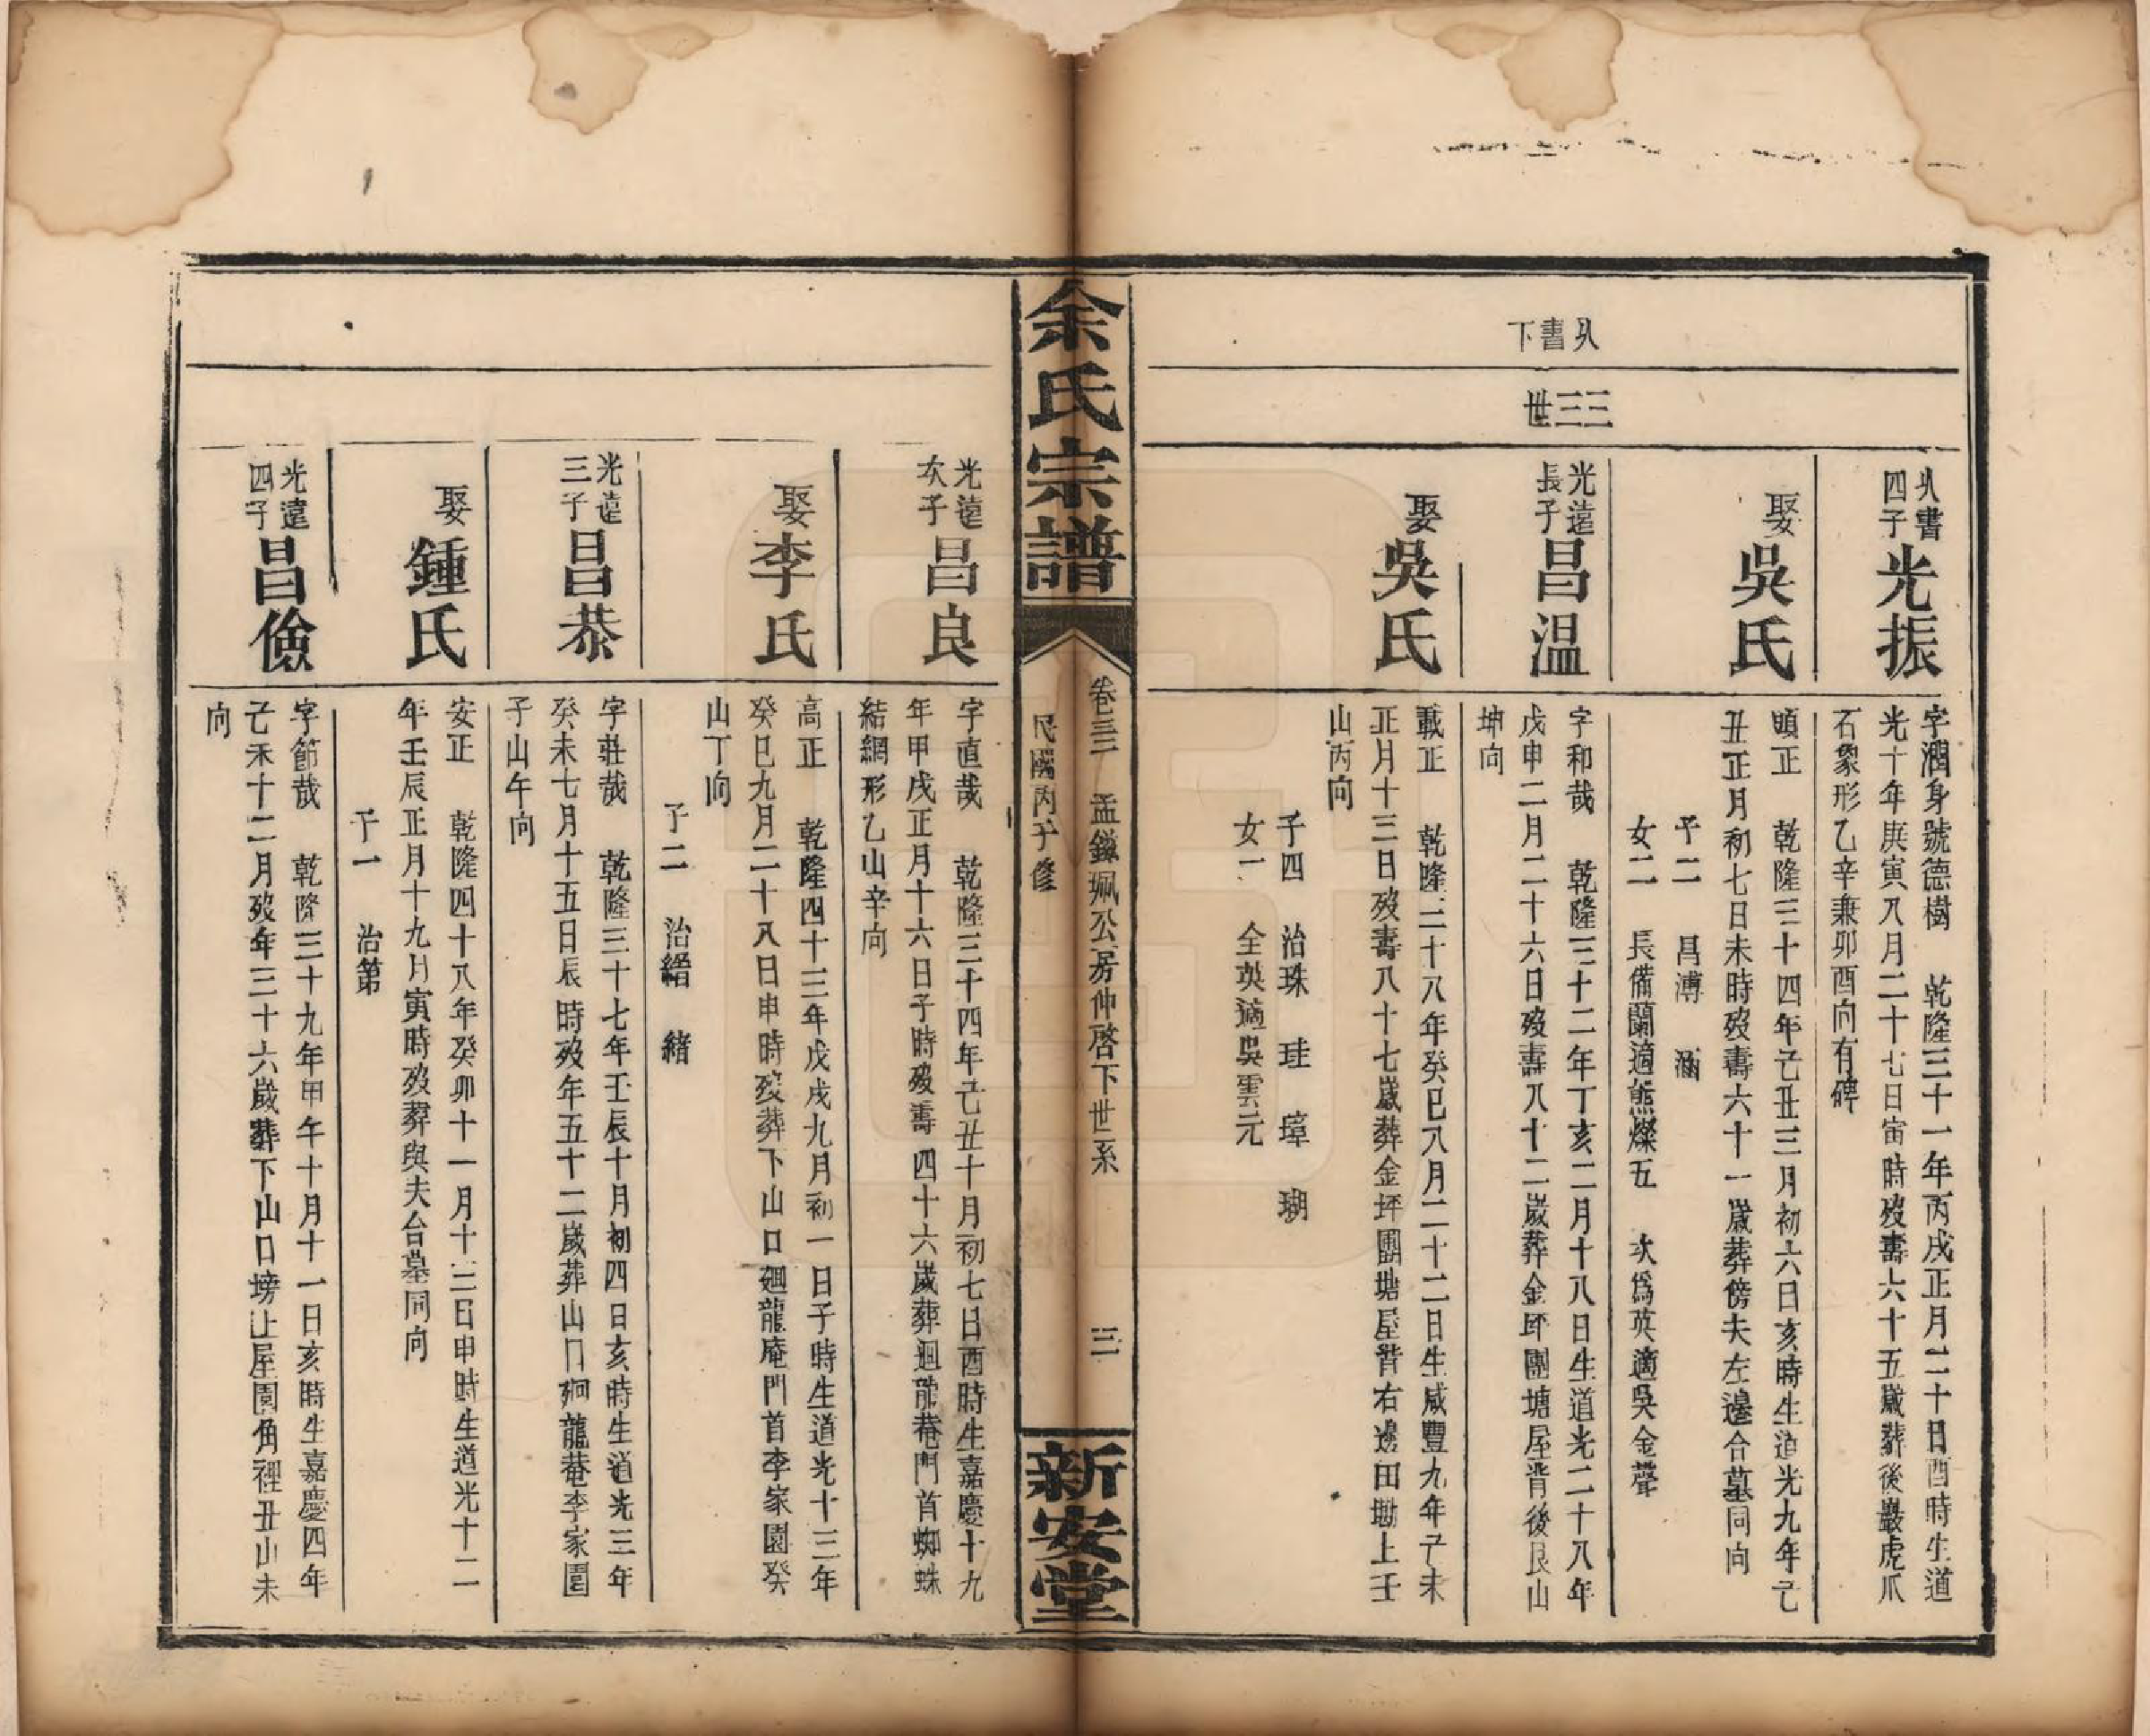 下書㕥
世三三
㕥書四子
光振
字潤身號德樹 乾隆三十一年丙戌正月二十日酉時生道
光十年庚寅八月二十七日寅時歿壽六十五歲葬後嚴虎爪
石象形乙辛兼卯酉向有碑
娶
吳氏
頭正 乾隆三十四年己丑三月初六日亥時生道光九年己
丑正月初七日未時歿壽六十一歲葬傍夫左邊合墓同向
子二 昌溥 涵
女二 長備蘭適熊燦五 次爲英適吳金聲
光遠長子
昌溫
字和哉 乾隆三十二年丁亥二月十八日生道光二十八年
戊申二月二十六日歿壽八十二歲葬金坪團塘屋背後艮山
坤向
娶
吳氏
載正 乾隆三十八年癸巳八月二十二日生咸豐九年己未
正月十三日歿壽八十七歲葬金坪團塘屋背右邊田墈上壬
山丙向
子四 治珠 珪 璋 瑚
女一 全英適吳雲元
余氏宗譜
卷三二 孟鎰珮公房仲啓下世系 三
民國丙子修
新安堂
光遠次子
昌良
字直哉 乾隆三十四年己丑十月初七日酉時生嘉慶十九
年甲戌正月十六日子時歿壽四十六歲葬迴龍菴門首蜘蛛
結網形乙山辛向
娶
李氏
高正 乾隆四十三年戊戌九月初一日子時生道光十三年
癸巳九月二十八日申時歿葬下山口迴龍庵門首李家園癸
山丁向
子二 治縉 緒
光遠三子
昌恭
字莊哉 乾隆三十七年壬辰十月初四日亥時生道光三年
癸未七月十五日辰時歿年五十二歲葬山口迴龍菴李家園
子山午向
娶
鍾氏
安正 乾隆四十八年癸卯十一月十三日申時生道光十二
年壬辰正月十九日寅時歿葬與夫合墓同向
子一 治第
光遠四子
昌儉
字節哉 乾隆三十九年甲午十月十一日亥時生嘉慶四年
己未十二月歿年三十六歲葬下山口塝上屋園角裡丑山未
向